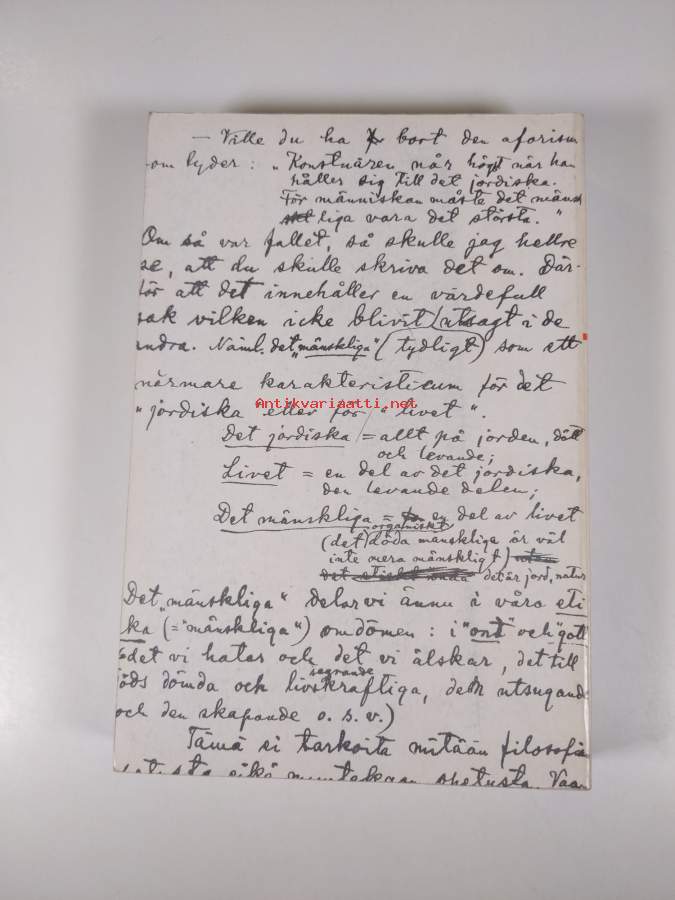 — Ville du ha bort den aforism
om lyder: „Konstnären når högt när han
håller sig till det jordiska.
För människan måste det mänsk
liga vara det största."
Om så var fallet, så skulle jag hellre
se, att du skulle skriva det om. Där-
för att det innehåller en värdefull
sak vilken icke blivit utsagt i de
andra. Näml. det „mänskliga" (tydligt) som ett
närmare karakteristicum för det
„jordiska" eller för „livet".
Antikvariaatti.net
Det jordiska = allt på jorden, dött
och levande;
Livet = en del av det jordiska,
den levande delen;
Det mänskliga = en del av livet
organiskt
(det) döda mänskliga är väl
inte mera mänskligt)
det är jord, natur
Det „mänskliga" delar vi ännu i våra eti
ka (= „mänskliga") omdömen: i „ont" och „gott
det vi hatar och det vi älskar, det till
segrande
döds dömda och livskraftiga, den utsugande
och den skapande o. s. v.)
Tämä ei tarkoita mitään filosofia